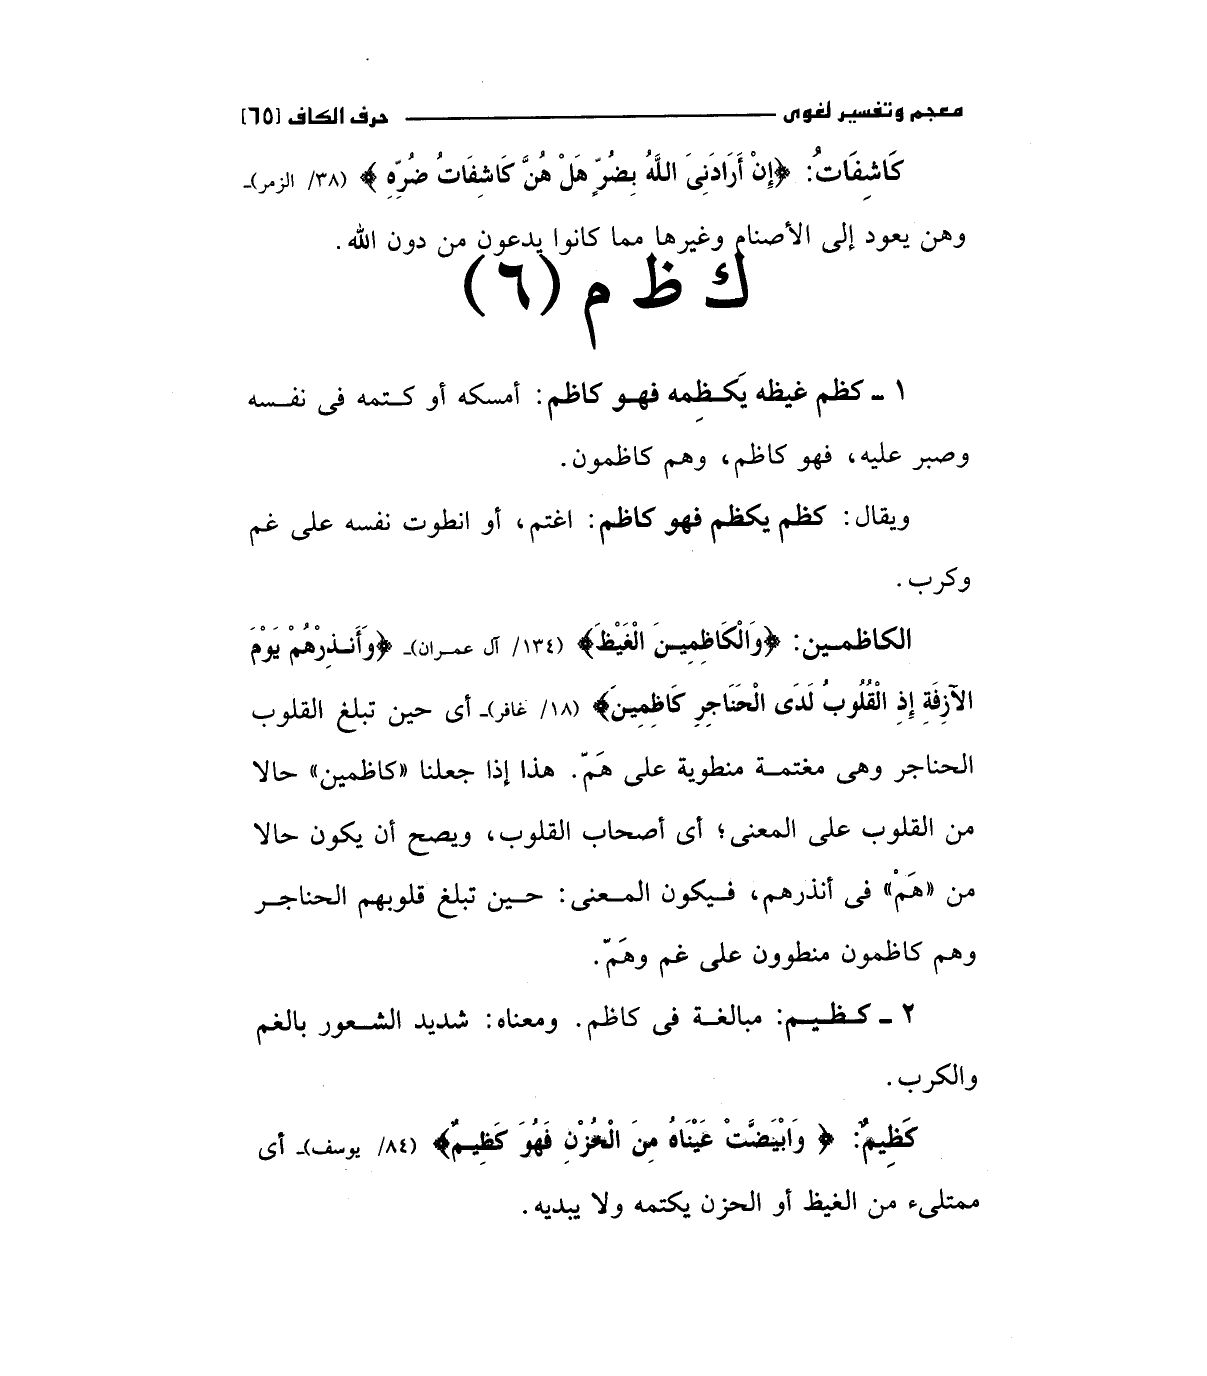 معجم وتفسير لغوى ــــــ حرف الكاف [٦٥]
كَاشِفَاتُ: ﴿إِنْ أَرَادَنِىَ اللَّهُ بِضُرٍّ هَلْ هُنَّ كَاشِفَاتُ ضُرِّهِ﴾ (٣٨/ الزمر)ـ
وهن يعود إلى الأصنام وغيرها مما كانوا يدعون من دون الله.
ك ظ م (٦)
١ ـ كظم غيظه يَكـظِمه فهـو كاظم: أمسكه أو كـتمه فى نفـسه
وصبر عليه، فهو كاظم، وهم كاظمون.
ويقال: كظم يكظم فهو كاظم: اغتم، أو انطوت نفسه على غم
وكرب.
الكاظمـين: ﴿وَالْكَاظِمِيـنَ الْغَيْظَ﴾ (١٣٤/ آل عمـران)ـ ﴿وَأَنـذِرْهُمْ يَوْمَ
الآزِفَةِ إِذِ الْقُلُوبُ لَدَى الْحَنَاجِرِ كَاظِمِينَ﴾ (١٨/ غافر)ـ أى حين تبلغ القلوب
الحناجر وهى مغتمـة منطوية على هَمّ. هذا إذا جعلنا «كاظمين» حالا
من القلوب على المعنى؛ أى أصحاب القلوب، ويصح أن يكون حالا
من «هَمْ» فى أنذرهم، فـيكون المـعنى: حـين تبلغ قلوبهم الحناجـر
وهم كاظمون منطوون على غم وهَمّ.
٢ ـ كـظـيـم: مبالغـة فى كاظم. ومعناه: شديد الشـعور بالغم
والكرب.
كَظِيمٌ: ﴿ وَابْيَضَّتْ عَيْنَاهُ مِنَ الْحُزْنِ فَهُوَ كَظِيـمٌ﴾ (٨٤/ يوسف)ـ أى
ممتلىء من الغيظ أو الحزن يكتمه ولا يبديه.